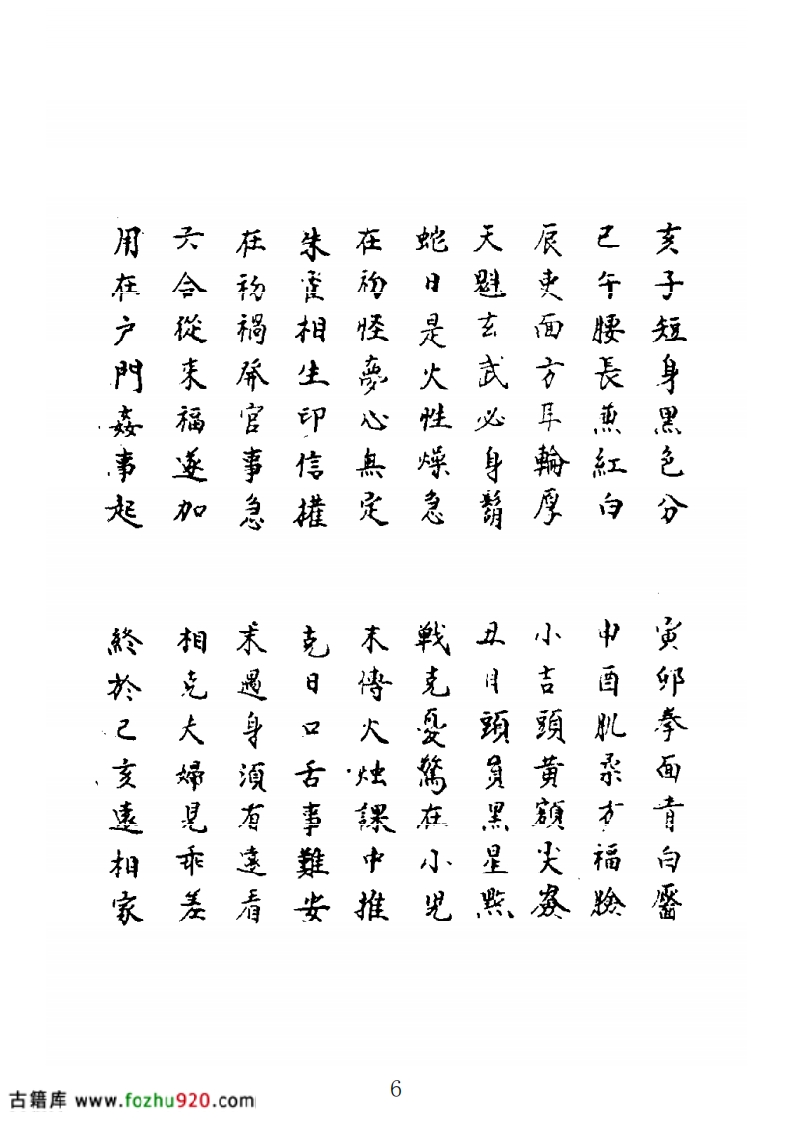 亥子短身黑色分　寅卯拳面青白靨
巳午腰長兼紅白　申酉肌柔方福臉
辰吏面方耳輪厚　小吉頭黃額尖
天魁玄武必身鬍　丑月頭員黑星點
蛇日是火性燥急　戰克憂驚在小児
在初怪夢心無定　末傳火烛課中推
朱雀相生印信權　克日口舌事難安
在初禍發官事急　末遇身須有遠看
六合從來福遂加　相克夫婦見乖差
用在户門姦事起　終於己亥遠相家
6
古籍库 www.fozhu920.com